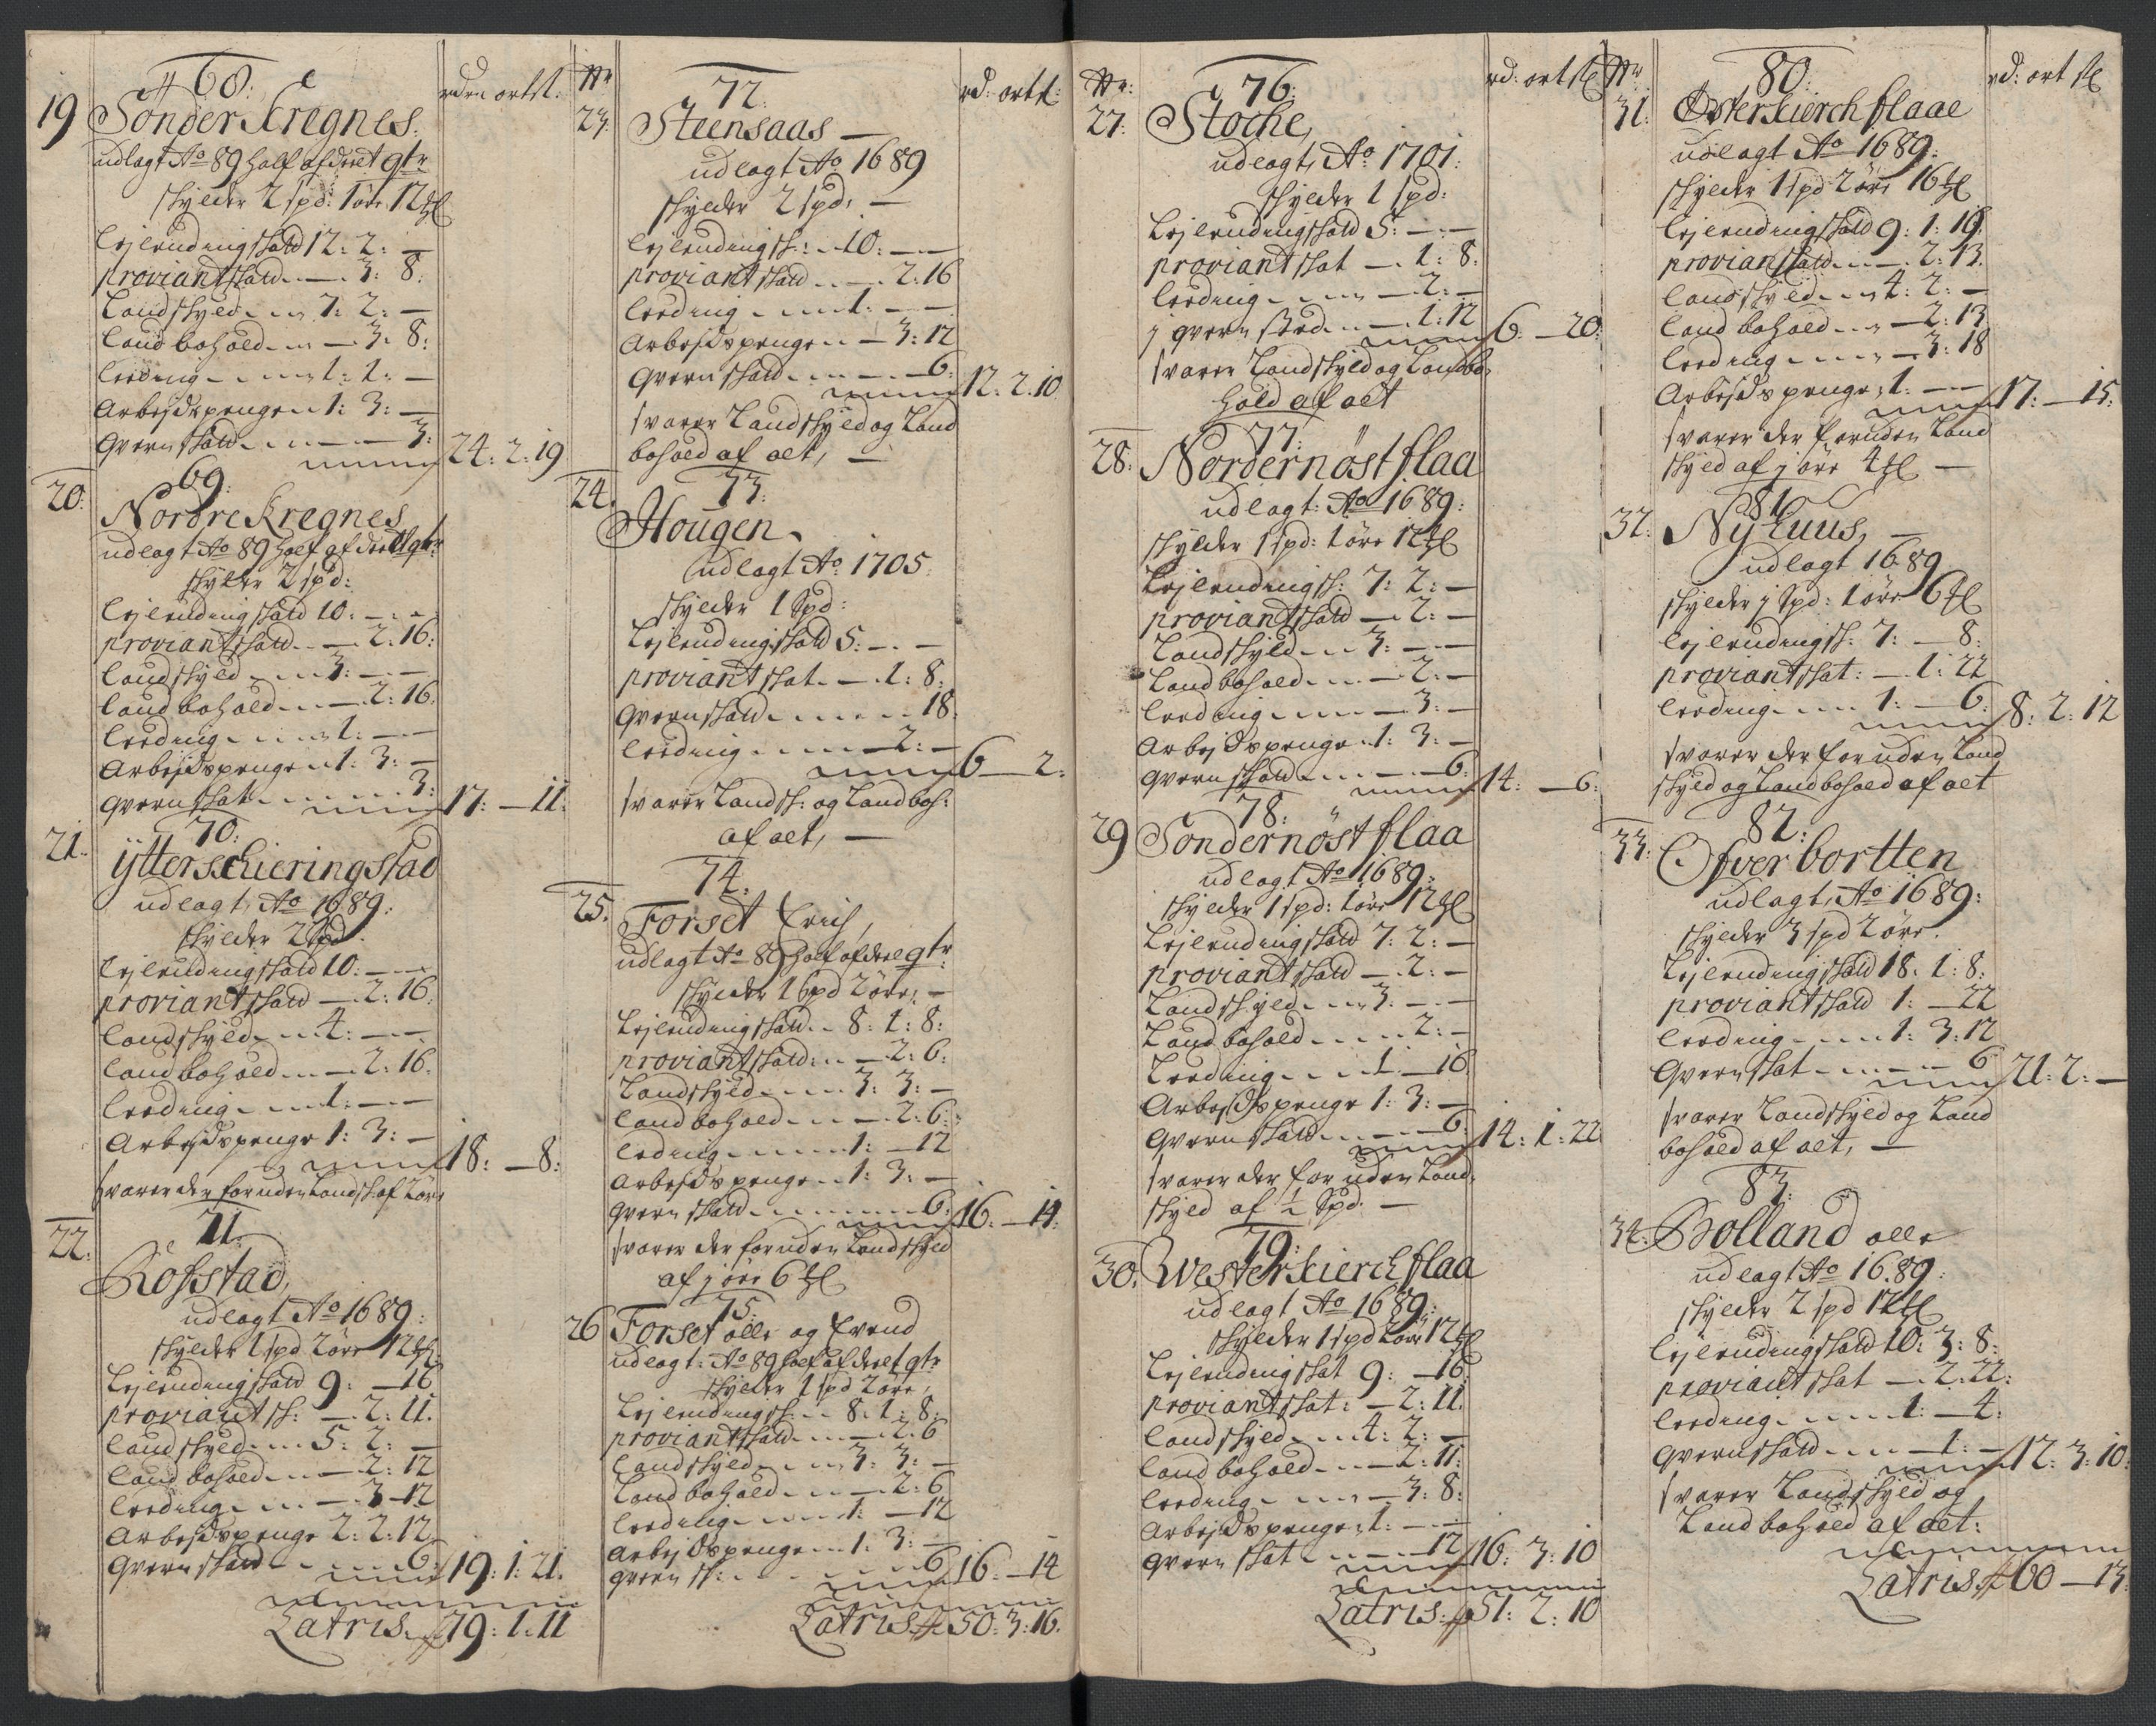 68.
rdr ort ſl:
19 Sönder Kregnes.
udlagt Ao 89 half afderet qtr
skylder 2 spd: 1 öre 12 ℔
Lejlendingskatt 12: 2: —
proviantskatt — 3: 8:
Landskyld 7: 2: —
Landbohold — 3: 8:
Leeding 1: 1: —
Arbejdspenge 1: 3: —
Qvernskatt — 3:
24: 2: 19
69:
20: Nordre Kregnes
udlagt Ao 89 half af deret qtr
skylder 2 spd:
Lejlendingskatt 10: — —
proviantskatt — 2: 16:
Landskyld 3: — —
Landbohold — 2: 16.
Leeding 1: — —
Arbejdspenge 1: 3: —
Qvernskat 3:
17: — 11:
70:
21. Ÿtterskieringstad
udlagt, Ao 1689:
skylder 2 Spd:
Lejlendingskatt 10: — —
proviantskatt — 2: 16.
Landskyld 4: — —
Landbohold — 2: 16.
Leeding 1: — —
Arbejdspenge 1: 3: —
18: — 8:
svarer der foruden Landsk af 2 öre
71.
22: Rosstad,
udlagt Ao 1689:
skylder 1 spd 2 öre 12 ℔
Lejlendingskatt 9: — 16
proviant sk: — 2: 11.
Landskyld 5: 2: —
Landbohold — 2: 12
Leeding — 3 — 12
Arbejdspenge 2: 2: 12
Qvernskatt 6:
19: 1: 21.
Latris 79: 1: 11
Nr
72.
rd: ort ſ:
23. Steensaas —
udlagt Ao 1689
skylder 2 spd: —
Lejlendingsk: 10: — —
proviantskatt — 2: 16
Leeding 1: — —
Arbejdspenge — 3: 12
Qvernskatt — 6:
12: 2: 10
svarer Landskyld og Land
bohold af alt, —
73.
24. Hougen.
udlagt Ao 1705.
skylder 1 Spd:
Lejlendingskatt 5: — —
proviantskat — 1: 8:
Qvernskatt 18.
Leeding — 2: —
6 — 2:
svarer Landsk: og Landboh:
af alt, —
74.
25. Forset Erich,
udlagt Ao 89 half afderet qtr
skylder 1 spd 2 öre, —
Lejlendingskatt 8: 1: 8:
proviantskatt: — 2: 6:
Landskyld 3: 3: —
Landbohold — 2: 6:
Leding 1: — 12
Arbejdspenge 1: 3: —
Qvernskatt 6:
16: — 14:
svarer der foruden Landskyld
af j öre 6 ℔
75:
26 Forset olle og Evend
udlagt: Ao 89 half af deret qtr
skylder 1 spd 2 öre,
Lejlendingsk: 8: 1: 8:
proviantskatt — 2: 6
Landskyld 3: 3: —
Landbohold — 2: 6
Leeding 1: — 12
Arbejdspenge 1: 3: —
Qvern sk: 6
16: — 14
Latris 50: 3: 16.
Nr:
76:
rd: ort ſl
27: Stoche,
udlagt, Ao 1701:
skylder 1 spd:
Lejlendingskatt 5: — —
proviantskat — 1: 8:
Leeding — 2: —
j qvernsted — 1: 12
6: — 20:
svarer Landskyld og Landbo,
hold af alt
77:
28: Nordernöstflaa
udlagt: Ao 1689:
skylder 1 spd: 1 öre 12 ℔
Lejlendingsk: 7: 2: —
proviantskatt — 2: —
Landskyld 3: — —
Landbohold — 2: —
Leeding — 3: —
Arbejdspenge 1: 3: —
Qvernskatt — 6:
14: — 6:
78:
29 Söndernöstflaa
udlagt Ao 1689:
skylder 1 spd: 1 öre 12 ℔
Lejlendingskatt 7: 2: —
proviantskatt — 2: —
Landskyld 3: — —
Landbohold 2: —
Leeding 1: — 16
Arbejdspenge 1: 3: —
Qvernskatt — 6:
14: 1: 22
svarer der foruden Land,
skyld af ½ Spd: —
79:
30. Westerkierchflaa
udlagt Ao 1689:
skylder 1 spd 2 öre 12 ℔
Lejlendingskat 9: — 16:
proviantskat: — 2: 11.
Landskyld 4: 2: —
Landbohold — 2: 11:
Leeding — 3: 8:
Arbejdspenge 1: — —
Qvernskat 12
16: 3: 10
Latris: 51: 2: 10
Nr
80:
rd: ort ſl
31. Østerkierchflaae
udlagt Ao 1689:
skylder 1 spd 2 öre 16 ℔
Lejlendingskatt 9: 1: 19.
proviantskatt — 2: 13.
Landskyld 4: 2: —
Landbohold — 2: 13
Leeding — 3: 18
Arbejdspenge 1: — —
17: — 15:
svarer der foruden Land
skyld af j öre 4 ℔ —
81.
32: Nÿhuus, —
udlagt 1689
skylder j Spd: 1 öre 6 ℔
Lejlendingsk: 7: — 8:
proviantskat: — 1: 22
Leeding 1: — 6:
8: 2: 12
svarer der foruden Land
skyld og Landbohold af alt
82:
33: Ofverbortten
udlagt, Ao 1689:
skylder 3 spd 2 öre.
Lejlendingskatt 18. 1: 8:
proviantskatt 1: — 22
Leeding 1: 3: 12
Qvernskat 6:
21: 2: —
svarer Landskyld og Land
bohold af alt, —
83.
34: Bolland olle
udlagt Ao 1689:
skylder 2 spd 12 ℔
Lejlendingskatt 10: 3: 8:
proviantskat — 2: 22:
Leeding 1: — 4:
Qvernskatt — 1: —
12: 3: 10:
svarer Landskyld og
Landbohold af alt:
Latris 60 — 13